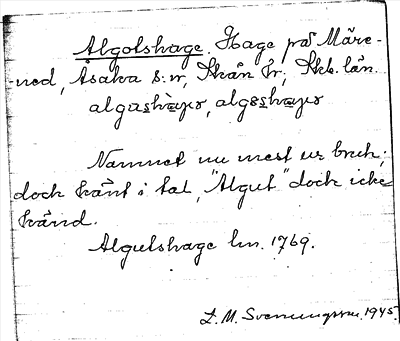 Algolshage. Hage på Märe-
-ned, Åsaka s:n, Skån hr, Skb. län.
algωshàgər, algəshagər
Namnet nu mest ur bruk;
dock känt i tal, "Algut" dock icke
känd.
Algutshage lm. 1769.
L. M. Svenungsson. 1945.